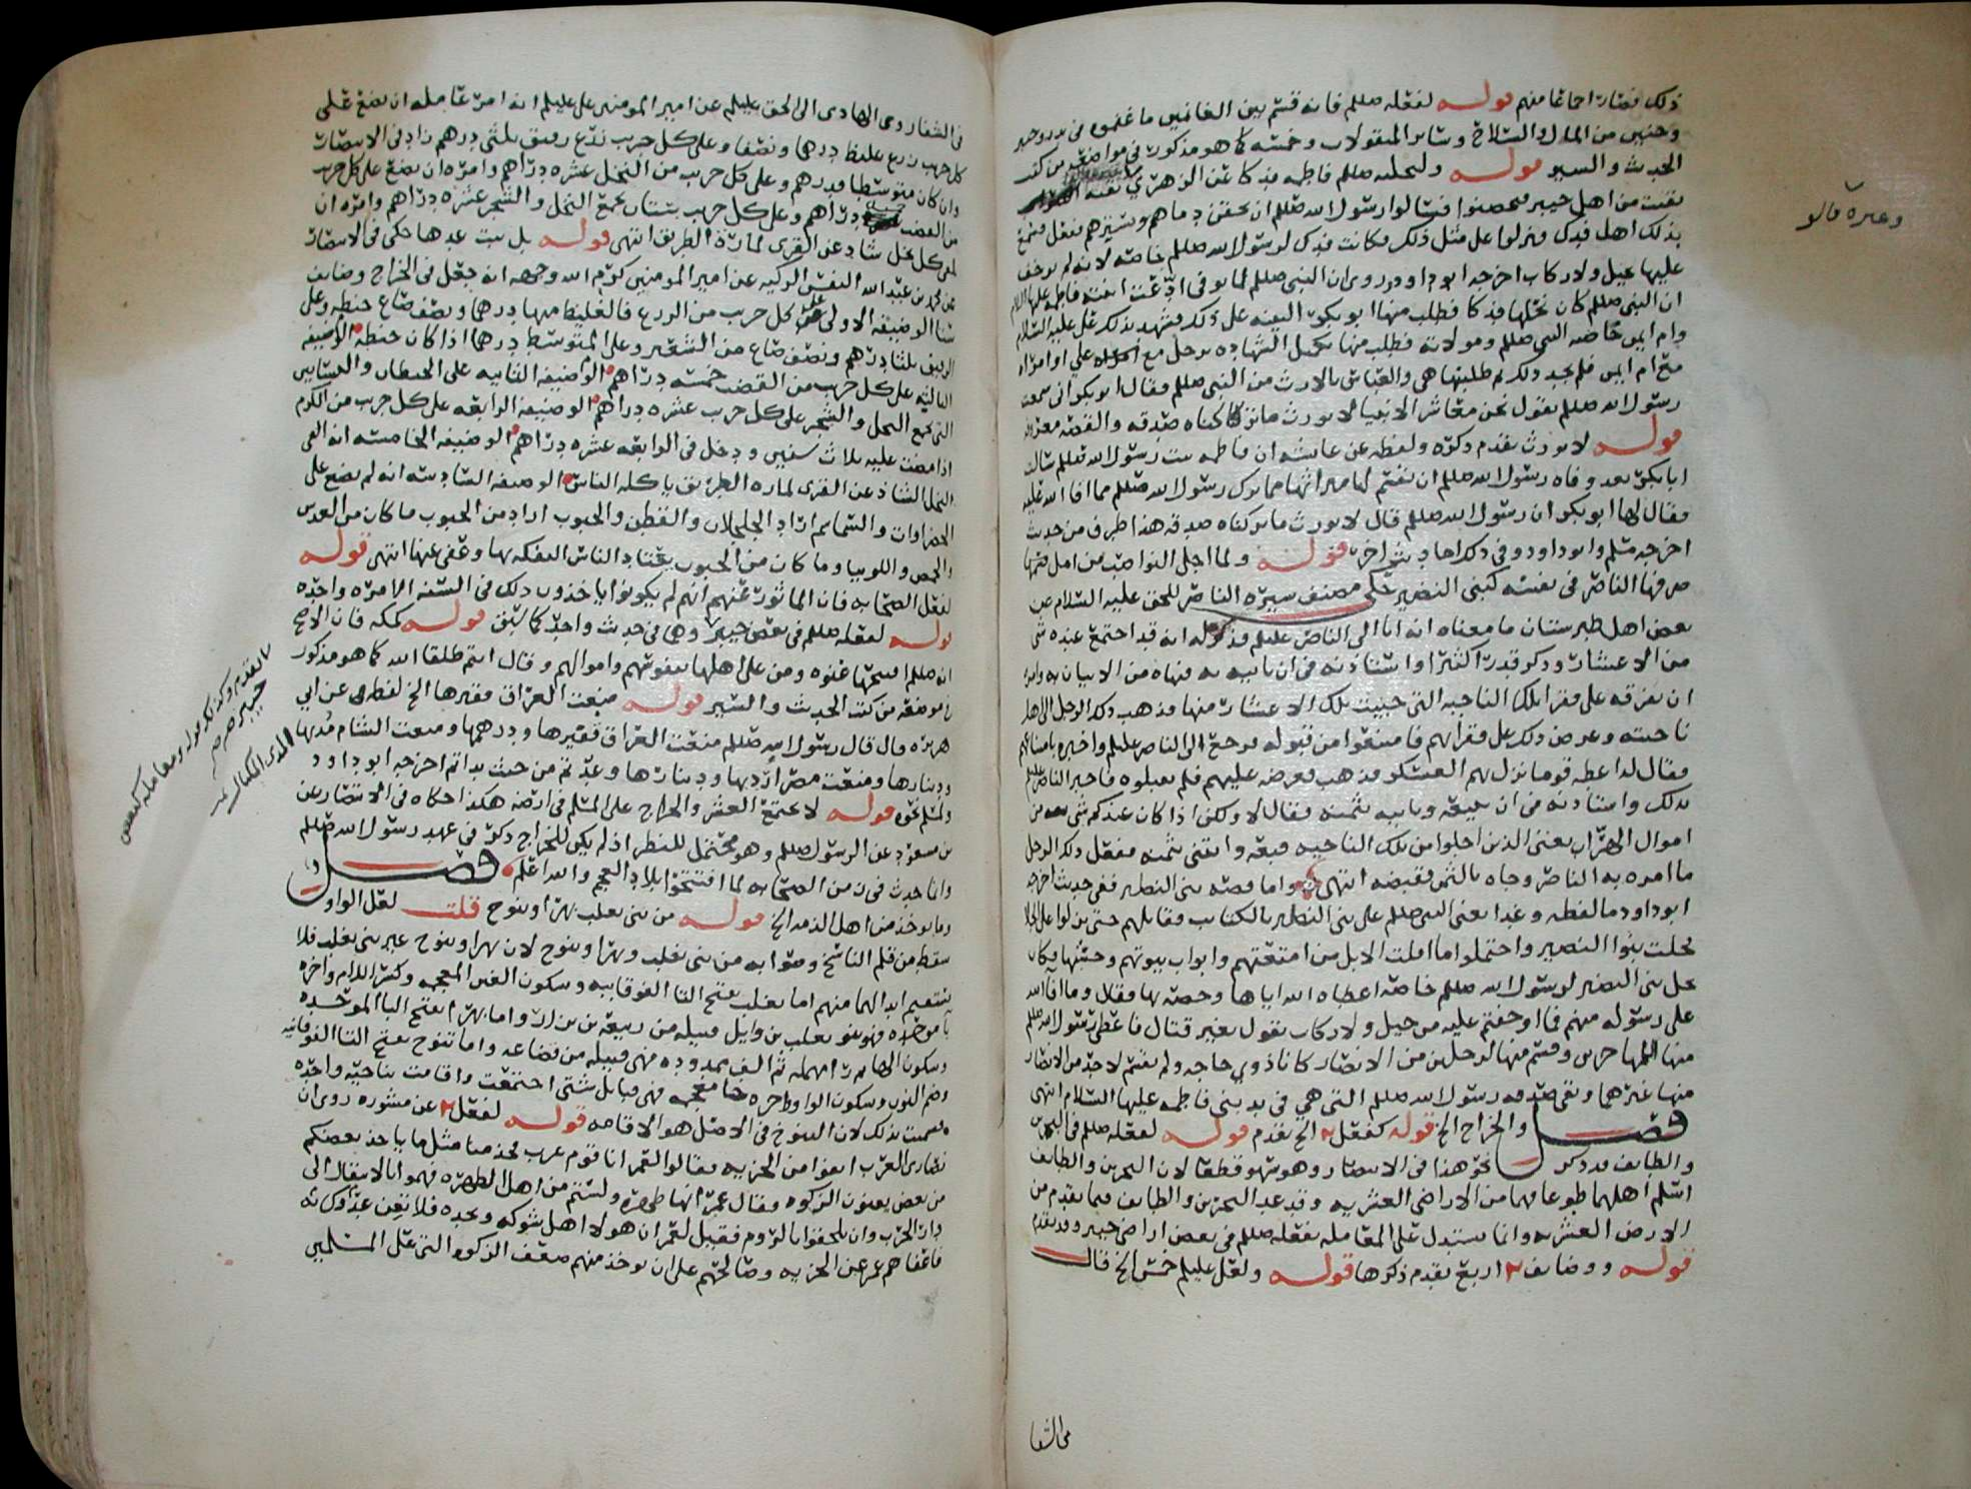 ذلك فصار اجماعا منهم قوله لفعله صللم فانه قسم بين الغانمين ما غنموه في بدر وخيبر
وحنين من المال والسلاح وسائر المنقولات وخمسه كما هو مذكور في مواضعه من كتب
الحديث والسير قوله ولنحله صللم فاطمه فدكا عن الزهري
بقيت من اهل خيبر تحصنوا فسالوا رسول الله صللم ان يحقن دماهم ويسيرهم ففعل فسمع
بذلك اهل فدك فنزلوا على مثل ذلك فكانت فدك لرسول الله صللم خاصه لانه لم يوجف
عليها بخيل ولا ركاب اخرجه ابو داود وروى ان النبي صللم لما توفي ادعت ابنته فاطمه عليها السلام
ان النبي صللم كان نحلها فدكا فطلب منها ابو بكر البينه على ذلك فشهد بذلك علي عليه السلام
وام ايمن حاضنه النبي صللم ومولاته فطلب منها تكميل الشهاده برجل مع علي او امراه
مع ام ايمن فلم يجد ذلك ثم طلبتها هي والعباس بالارث من النبي صللم فقال ابو بكر اني سمعت
رسول الله صللم يقول نحن معاشر الانبيا لا نورث ما تركناه صدقه والقصه معروفه
قوله لا نورث تقدم ذكره ولفظه عن عايشه ان فاطمه بنت رسول الله صللم سالت
ابا بكر بعد وفاه رسول الله صللم ان يقسم لها ميراثها مما ترك رسول الله صللم مما افا الله عليه
فقال لها ابو بكر ان رسول الله صللم قال لا نورث ما تركناه صدقه هذا طرف من حديث
اخرجه مسلم وابو داود وفي ذلك احاديث اخر قوله ولما اجلى النواصب من امل فيها
صرفها الناصر في نفسه كبني النضير حكى مصنف سيره الناصر للحق عليه السلام عن
بعض اهل طبرستان ما معناه انه اتا الى الناصر عليلم فذكر له انه قد اجتمع عنده شي
من الاعشار وذكر قدرا كثيرا واستاذنه في ان ياتيه به فنهاه من الاتيان به وامره
ان يفرقه على فقرا تلك الناحيه التي جبيت تلك الاعشار منها فذهب ذلك الرجل الى اهل
ناحيته وعرض ذلك على فقرائهم فامتنعوا من قبوله فرجع الى الناصر عليلم واخبره بامتناعهم
فقال له اعطه قوما نزل بهم العسكر فذهب فعرضه عليهم فلم يقبلوه فاخبر الناصر عليلم
بذلك واستاذنه في ان يبيعه وياتيه بثمنه فقال لا ولكن اذا كان عندكم شي من
اموال الهراب يعني الذين اجلوا من تلك الناحيه فبعه وائتني بثمنه ففعل ذلك الرجل
ما امره به الناصر وجاه بالثمن فقبضه انتهى واما قصه بني النضير ففي حديث اخرجه
ابو داود ما لفظه وغدا يعني النبي صللم على بني النضير بالكتايب فقاتلهم حتى نزلوا على الجلا
فجلت بنوا النضير واحتملوا ما اقلت الابل من امتعتهم وابواب بيوتهم وخشبها وكان
نخل بني النضير لرسول الله صللم خاصه اعطاه الله اياها وخصه بها فقال وما افا الله
على رسوله منهم فما اوجفتم عليه من خيل ولا ركاب يقول بغير قتال فاعطى رسول الله صللم
منها المهاجرين وقسم منها لرجلين من الانصار كانا ذوي حاجه ولم يقسم لاحد من الانصار
منها غيرهما وبقي صدقه رسول الله صللم التي هي في يد بني فاطمه عليها السلام انتهى
فصل والخراج الخ قوله كفعل ٢ الخ تقدم قوله لفعله صللم في البحرين
والطايف قد ذكر نحو هذا في الانتصار وهو سهو قطعا لان البحرين والطايف
اسلم اهلهما طوعا فهما من الاراضي العشريه وقد عد البحرين والطايف فيما تقدم من
الارض العشريه وانما يستدل على المعامله بفعله صللم في بعض اراضي خيبر وقد تقدم
قوله ووضايف ٢ اربع تقدم ذكرها قوله ولعل عليلم خمس الخ قال
في الشفا
وغيره قالو
في الشفا روى الهادي الى الحق عليلم عن امير المومنين علي عليلم انه امر عامله ان يضع على
كل جريب زرع غليظ درهما ونصفا وعلى كل جريب زرع رقيق ثلثي درهم زاد في الانتصار
وان كان متوسطا فدرهم وعلى كل جريب من النخل عشره دراهم وامره ان يضع على كل جريب
من القضب خمسه دراهم وعلى كل جريب بستان يجمع النخل والشجر عشره دراهم وامره ان
يلقي كل نخل شاذ عن القرى لماره الطريق انتهى قوله بل ست عدها حكى في الانتصار
عن محمد بن عبد الله النفس الزكيه عن امير المومنين كرم الله وجهه انه جعل في الخراج وضايف
ستا الوضيفه الاولى على كل جريب من الزرع فالغليظ منها درهما ونصف صاع حنطه وعلى
الرقيق ثلثا درهم ونصف صاع من الشعير وعلى المتوسط درهما اذا كان حنطه الوضيفه
الثانيه على كل جريب من القضب خمسه دراهم الوضيفه الثالثه على الحيطان والبساتين
التي تجمع النخل والشجر على كل جريب عشره دراهم الوضيفه الرابعه على كل جريب من الكرم
اذا مضت عليه ثلاث سنين ودخل في الرابعه عشره دراهم الوضيفه الخامسه انه القى
النخل الشاذ عن القرى لماره الطريق ياكله الناس الوضيفه السادسه انه لم يضع على
الخضراوات والسماسم اراد الجلجلان والقطن والحبوب اراد من الحبوب ما كان من العدس
والحمص واللوبيا وما كان من الحبوب يعتاد الناس التفكه بها وعفى عنها انتهى قوله
لفعل الصحابه فان الماثور عنهم انهم لم يكونوا ياخذون ذلك في السنه الا مره واحده
قوله لفعله صللم في بعض خيبر وهي في حديث واحد كما سبق قوله كمكه فان الاصح
انه صللم افتتحها عنوه ومن على اهلها بنفوسهم واموالهم وقال انتم طلقا الله كما هو مذكور
في موضعه من كتب الحديث والسير قوله منعت العراق قفيزها الخ لفظه عن ابي
هريره قال قال رسول الله صللم منعت العراق قفيزها ودرهمها ومنعت الشام مديها
ودينارها ومنعت مصر اردبها ودينارها وعدتم من حيث بداتم اخرجه ابو داود
ولمسلم نحوه قوله لا يجتمع العشر والخراج على المسلم في ارضه هكذا حكاه في الانتصار عن
بن مسعود عن الرسول صللم وهو محتمل للنظر اذ لم يكن للخراج ذكر في عهد رسول الله صللم
وانما حدث في زمن الصحابه لما افتتحوا بلاد العجم والله اعلم فصل
وما يوخذ من اهل الذمه الخ قوله من بني تغلب بهرا وتنوخ قلت لعل الواو
سقط من قلم الناسخ وصوابه من بني تغلب وبهرا وتنوخ لان بهرا وتنوخ غير بني تغلب فلا
يستقيم ابدالهما منهم اما تغلب بفتح التا الفوقانيه وسكون الغين المعجمه وكسر اللام واخره
با موحده فهو بنو تغلب بن وايل قبيله من ربيعه بن نزار واما بهرا بفتح البا الموحده
وسكون الها ثم را مهمله ثم الف ممدوده فهي قبيله من قضاعه واما تنوخ بفتح التا الفوقانيه
وضم النون وسكون الواو واخره خا معجمه فهي قبايل شتى اجتمعت واقامت بناحيه واحده
فسميت بذلك لان التنوخ في الاصل هو الاقامه قوله لفعل ٢ عن مشوره روى ان
نصارى العرب انفوا من الجزيه فقالوا لعمر انا قوم عرب فخذ منا مثل ما ياخذ بعضكم
من بعض يعنون الزكوه فقال عمر انها طهره ولستم من اهل الطهره فهموا بالانتقال الى
دار الحرب وان يلحقوا بالروم فقيل لعمر ان هولا اهل شوكه ونجده فلا تعن عدوك به
فاعفاهم عمر عن الجزيه وصالحهم على ان يوخذ منهم ضعف الزكوه التي على المسلمين